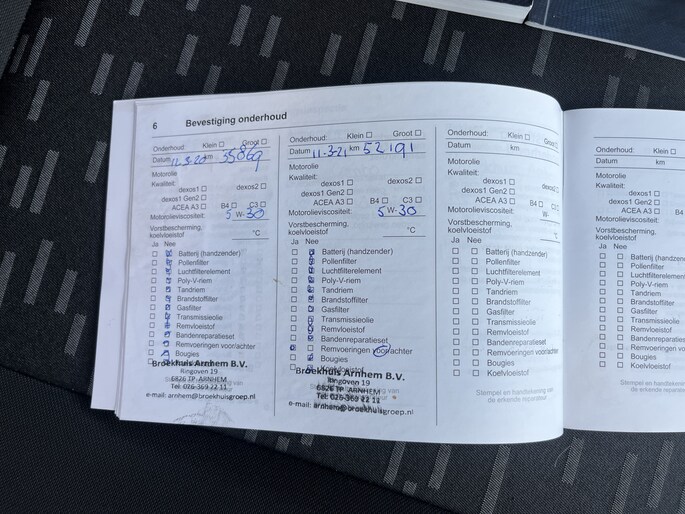 6 Bevestiging onderhoud
Onderhoud: Klein Groot
Datum 12-3-20 km 35069
Motorolie
Kwaliteit:
dexos1 dexos2
dexos1 Gen2
ACEA A3 B4 C3
Motorolieviscositeit: 5 W-30
Vorstbescherming,
koelvloeistof °C
Ja Nee
Batterij (handzender)
Pollenfilter
Luchtfilterelement
Poly-V-riem
Tandriem
Brandstoffilter
Gasfilter
Transmissieolie
Remvloeistof
Bandenreparatieset
Remvoeringen voor/achter
Bougies
Broekhuis Arnhem B.V.
Ringoven 19
6826 TP ARNHEM
Tel: 026-369 22 11
e-mail: arnhem@broekhuisgroep.nl
Onderhoud: Klein Groot
Datum 11-3-21 km 52191
Motorolie
Kwaliteit:
dexos1 dexos2
dexos1 Gen2
ACEA A3 B4 C3
Motorolieviscositeit: 5 W-30
Vorstbescherming,
koelvloeistof °C
Ja Nee
Batterij (handzender)
Pollenfilter
Luchtfilterelement
Poly-V-riem
Tandriem
Brandstoffilter
Gasfilter
Transmissieolie
Remvloeistof
Bandenreparatieset
Remvoeringen voor/achter
Bougies
Koelvloeistof
Broekhuis Arnhem B.V.
Ringoven 19
6826 TP ARNHEM
Tel: 026-369 22 11
e-mail: arnhem@broekhuisgroep.nl
Onderhoud: Klein Groot
Datum km
Motorolie
Kwaliteit:
dexos1 dexos2
dexos1 Gen2
ACEA A3 B4 C3
Motorolieviscositeit: W-
Vorstbescherming,
koelvloeistof °C
Ja Nee
Batterij (handzender)
Pollenfilter
Luchtfilterelement
Poly-V-riem
Tandriem
Brandstoffilter
Gasfilter
Transmissieolie
Remvloeistof
Bandenreparatieset
Remvoeringen voor/achter
Bougies
Koelvloeistof
Stempel en handtekening van
de erkende reparateur
Onderhoud: Klein
Datum km
Motorolie
Kwaliteit:
dexos1
dexos1 Gen2
ACEA A3
Motorolieviscositeit:
Vorstbescherming,
koelvloeistof
Ja Nee
Batterij (handzender)
Pollenfilter
Luchtfilterelement
Poly-V-riem
Tandriem
Brandstoffilter
Gasfilter
Transmissieolie
Remvloeistof
Bandenreparatieset
Remvoeringen voor/achter
Bougies
Koelvloeistof
Stempel en handtekening
de erkende reparateur